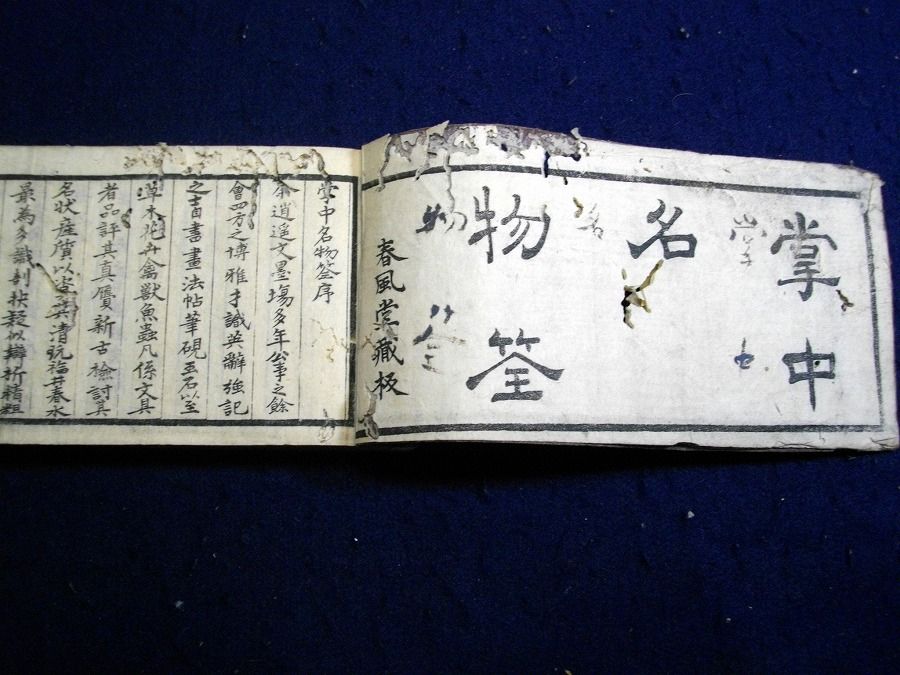 掌中
名
物筌
春風堂藏板
掌中名物筌序
余逍遥文墨場多年公事之餘
會四方之博雅才識英辭強記
之士自書畫法帖筆硯玉石以至
草木花卉禽獸魚蟲凡係文具
者品評其真贋新古檢討其
名状産質以資其清玩福井春水
最為多識剖抉疑似辨析精粗